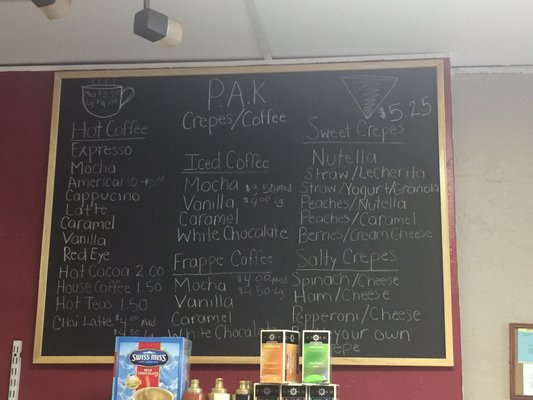 P.A.K
Crepes/Coffee
Hot Coffee
Expresso
Mocha
Americano
Cappucino
Latte
Caramel
Vanilla
Red Eye
Hot Cocoa 2.00
House Coffee 1.50
Hot Teas 1.50
Chai Latte $4.00 md
$4.50 Lg
Iced Coffee
Mocha $3.50 Med
Vanilla $4.00 Lg
Caramel
White Chocalate
Frappe Coffee
Mocha $4.00 med
Vanilla $4.50 Lg
Caramel
White Chocalate
$5.25
Sweet Crepes
Nutella
Straw/Lecherita
Straw/Yogurt/Granola
Peaches/Nutella
Peaches/Caramel
Berries/Cream Cheese
Salty Crepes
Spinach/Cheese
Ham/Cheese
Pepperoni/Cheese
your own
SWISS MISS
MILK CHOCOLATE